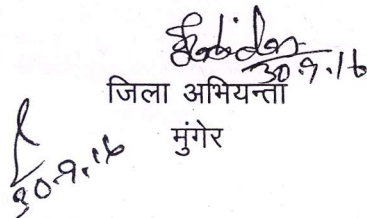 30.9.16
जिला अभियन्ता
मुंगेर
30.9.16